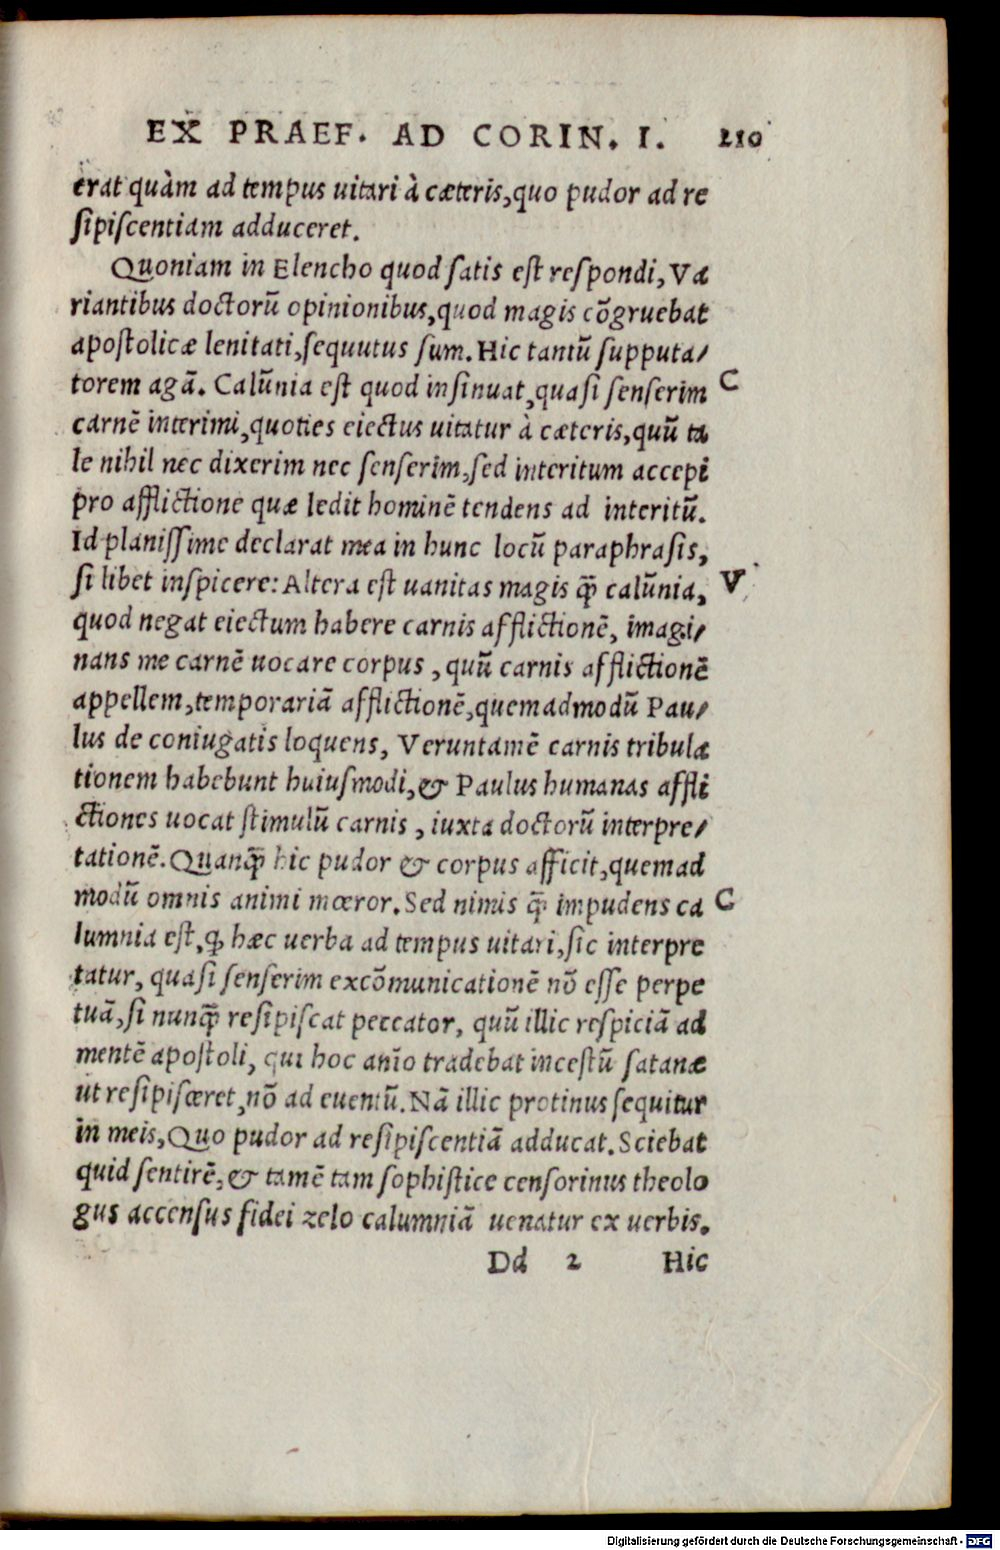 EX PRAEF. AD CORIN. I. 210
erat quàm ad tempus uitari à cæteris, quo pudor ad re
sipiscentiam adduceret.
Quoniam in Elencho quod satis est respondi, Va
riantibus doctorū opinionibus, quod magis cōgruebat
apostolicæ lenitati, sequutus sum. Hic tantū supputa/
torem agā. Calūnia est quod insinuat, quasi senserim C
carnē interimi, quoties eiectus uitatur à cæteris, quū ta
le nihil nec dixerim nec senserim, sed interitum accepi
pro afflictione quæ ledit hominē tendens ad interitū.
Id planissime declarat mea in hunc locū paraphrasis,
si libet inspicere: Altera est uanitas magis q̄ calūnia, V
quod negat eiectum habere carnis afflictionē, imagi/
nans me carnē uocare corpus, quū carnis afflictionē
appellem, temporariā afflictionē, quemadmodū Pau/
lus de coniugatis loquens, Veruntamē carnis tribula
tionem habebunt huiusmodi, & Paulus humanas affli
ctiones uocat stimulū carnis, iuxta doctorū interpre/
tationē. Quanq̄ hic pudor & corpus afficit, quemad
modū omnis animi mœror. Sed nimis q̄ impudens ca C
lumnia est, ꝙ hæc uerba ad tempus uitari, sic interpre
tatur, quasi senserim excōmunicationē nō esse perpe
tuā, si nunq̄ resipiscat peccator, quū illic respiciā ad
mentē apostoli, qui hoc aīo tradebat incestū satanæ
ut resipisceret, nō ad euentū. Nā illic protinus sequitur
in meis, Quo pudor ad resipiscentiā adducat. Sciebat
quid sentirē, & tamē tam sophistice censorinus theolo
gus accensus fidei zelo calumniā uenatur ex uerbis.
Dd 2 Hic
Digitalisierung gefördert durch die Deutsche Forschungsgemeinschaft - DFG